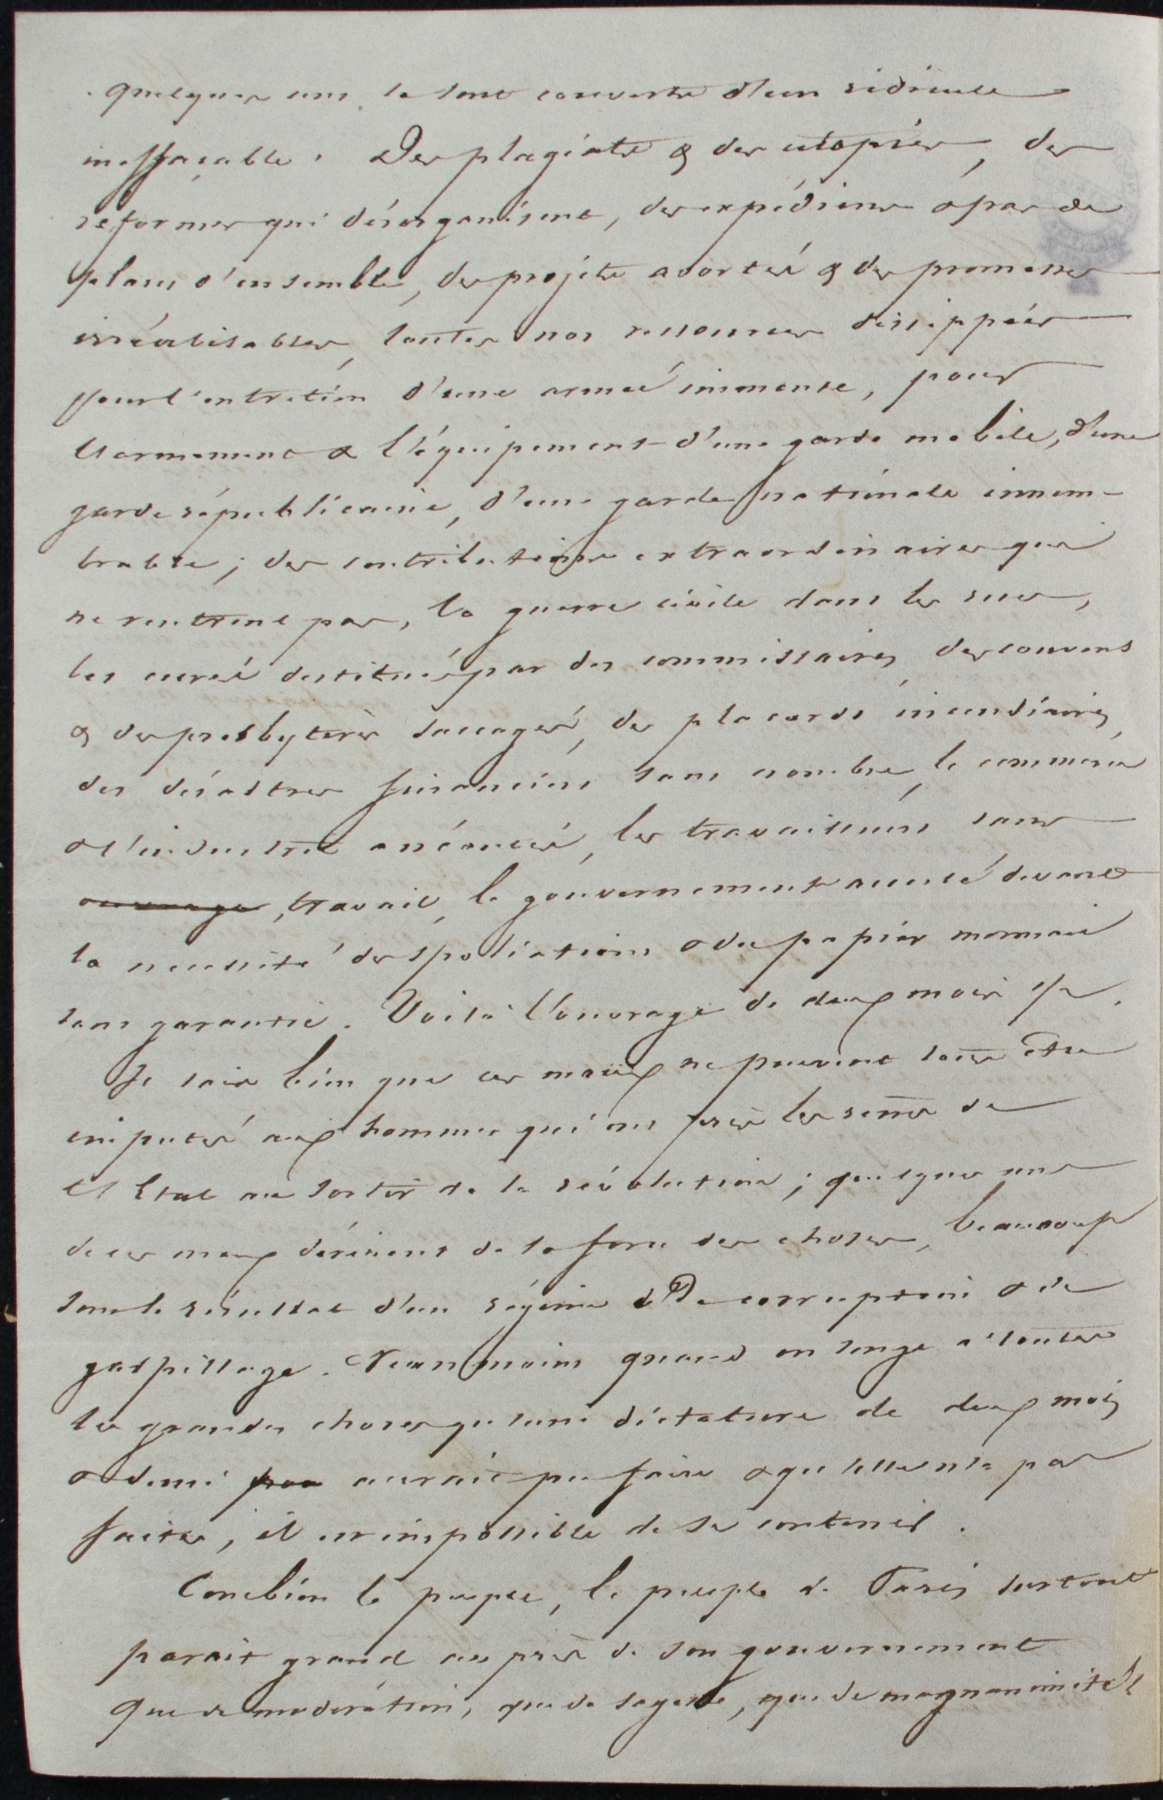 quelques uns se sont couverts d'un ridicule
ineffaçable. Des plagiats & des utopies, des
réformes qui désorganisent, des expédiens & pas de
plans d'ensemble, des projets avortés & des promesses
irréalisables, toutes nos ressources dissippées
pour l'entretien d'une armée immense, pour
l'armement & l'équipement d'une garde mobile, d'une
garde républicaine, d'une garde nationale innom-
brable; des contributions extraordinaires qui
ne rentrent pas, la guerre civile dans les rues,
les curés destitués par des commissaires, des couvens
& des presbytères saccagés, des placards incendiaires,
des désastres financiers sans nombre, le commerce
& l'industrie anéantis, les travailleurs sans
ouvrage, travail, le gouvernement acculé devant
la nécessité des spoliations & du papier monnaie
sans garantie. Voilà l'ouvrage de deux mois ½.
Je sais bien que ces maux ne peuvent tous être
imputés aux hommes qui ont pris les rênes de
l'Etat au sortir de la révolution; quelques uns
de ces maux dérivent de la force des choses, beaucoup
sont le résultat d'un régime de corruption & de
gaspillage. Néanmoins quand on songe à toutes
les grandes choses qu'une dictature de deux mois
& demi aurait pu faire & qu'elle n'a pas
faites, il est impossible de se contenir.
Combien le peuple, le peuple de Paris surtout
parait grand auprès de son gouvernement
Que de modération, que de sagesse, que de magnanimité!